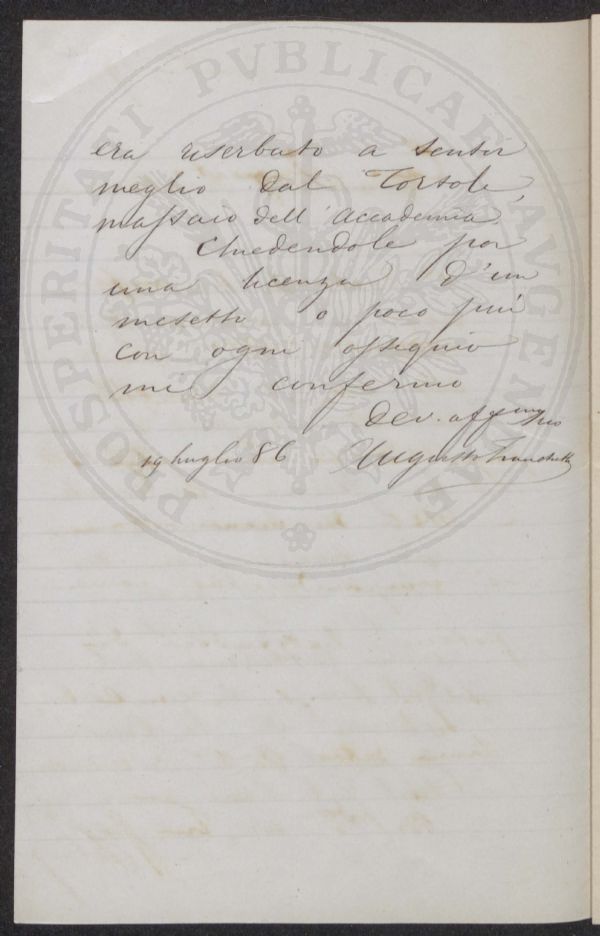 PROSPERITATI PVBLICAE AVGENDAE
era riserbato a sentir
meglio dal Tortoli,
massaio dell'Accademia.
Chiedendole poi
una licenza d'un
mesetto o poco più
con ogni ossequio
mi confermo
dev. aff.mo suo
19 luglio 86 Augusto Franchetti